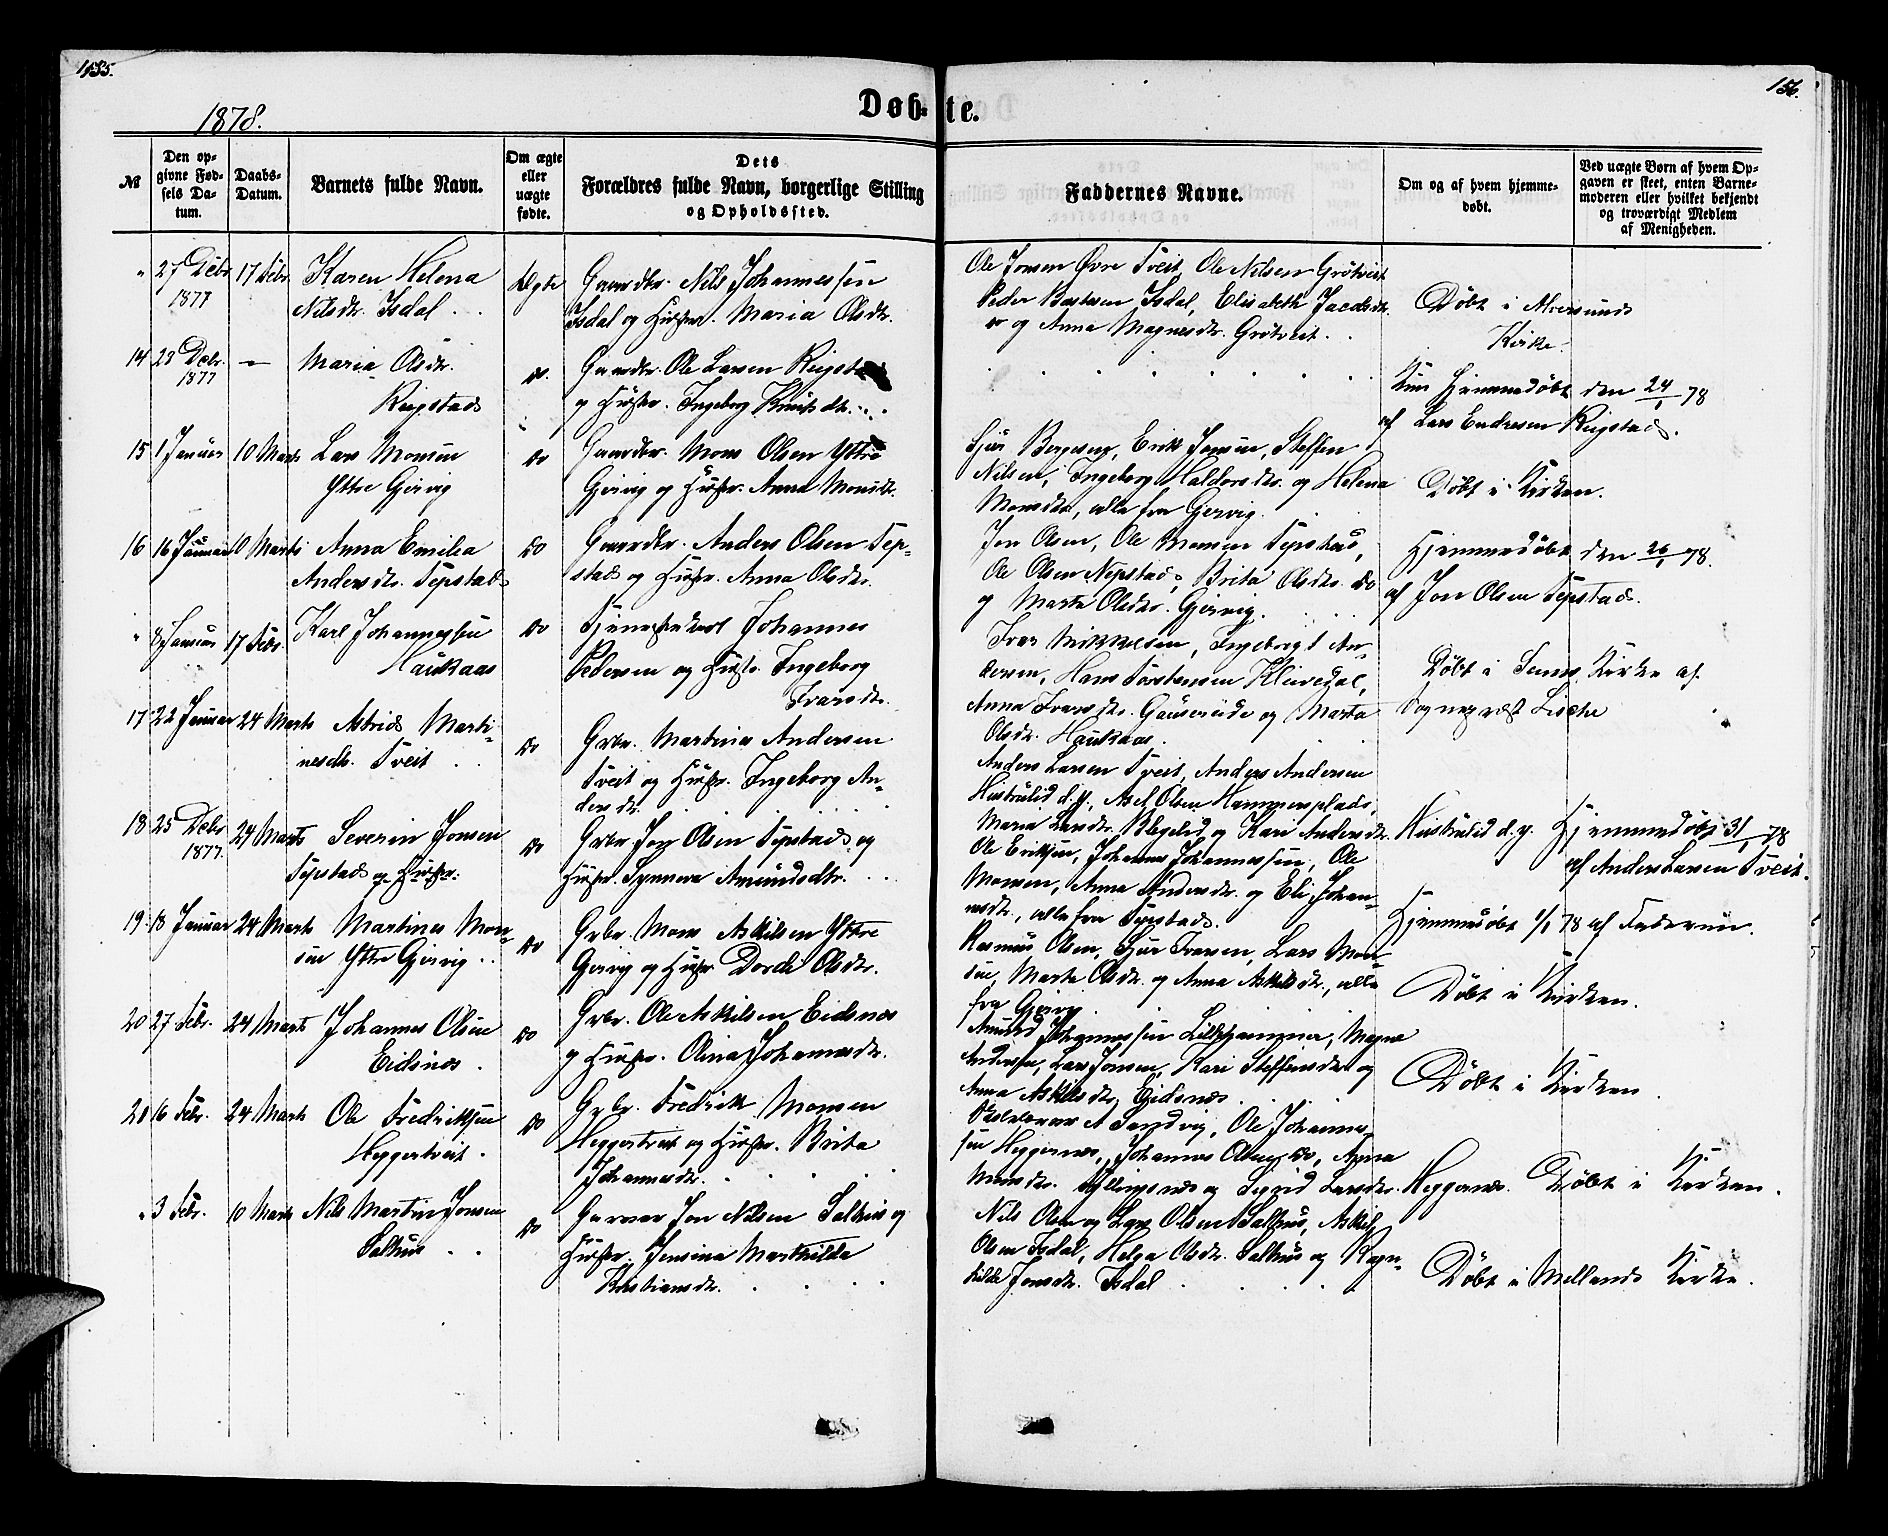 155.
156.
1878.
Døbte.
№
Den opgivne Fødsels Datum.
Daabs-Datum.
Barnets fulde Navn.
Om ægte eller uægte fødte.
Dets Forældres fulde Navn, borgerlige Stilling og Opholdssted.
Faddernes Navne.
Om og af hvem hjemmedøbt.
Ved uægte Børn af hvem Opgaven er skeet, enten Barnemoderen eller hvilket bekjendt og troværdigt Medlem af Menigheden.
" 27 Debr. 1877 17 Febr. Karen Helena
Nilsdr. Isdal
Ægte
Gaardbr. Nils Johannessen
Isdal og Hustr. Maria Olsdr.
Ole Jonsen Øvre Tveit, Ole Nilsen Grötveit
Peder Isdal, Elisabeth
og Anna Magnesdr. Grötveit
Døbt i Alversunds
Kirke.
14 23 Debr. 1877 — Maria Olsdr.
Rigstad
do.
Gaardbr. Ole Larsen
og Hustr. Ingeborg Knutsdr.
Kun Hjemmedøbt den 24/1 78
af Lars Endresen Rigstad.
15 1 Januar 10 Marts Lars Monsen
Ytre Gjervig
do
Gaardbr. Mons Olsen Ytre
Gjervig og Hustr. Anna Monsdr.
Sjur Erik Jonsen, Steffen
Nilsen, Ingeborg Haldorsdr. og Helena
Monsdr, alle fra Gjervig.
Døbt i Kirken.
16 16 Januar 10 Marts Anna Emilia
Andersdr. Tepstad
do
Gaardbr. Anders Olsen Tep-
stad og Hustr. Anna Olsdr.
Jon Olsen, Ole Monsen Tepstad,
Ole Olsen Nepstad, Brita Olsdr. do
og Marta Olsdr. Gjervig.
Hjemmedøbt den 26/1 78.
af Jon Olsen Tepstad.
" 8 Januar 17 Febr. Karl Johannessen
Haukaas
do
Tjenestekarl Johannes
Pedersen og Hustr. Ingeborg
Ivarsdr.
Ivar Mikkelsen, Ingeborg An-
dersen, Hans Torstensen Kleivedal,
Anna Ivarsdr. Gausereide og Marta
Olsdr. Haukaas.
Døbt i Kirke af
Sognepræst
17 22 Januar 24 Marts Astrid Marti-
nesdr. Tveit
do
Grbr. Martines Andersen
Tveit og Hustr. Ingeborg An-
dersdr.
Anders Larsen Tveit, Anders Andersen
Hustrulid d.y., Axel Olsen Hammersplads,
Maria Larsdr. og Kari Andersdr. Hustrulid d.y.
Hjemmedøbt 31/1 78
af Anders Larsen Tveit.
18 25 Debr 1877. 24 Marts Severin Jonsen
Tepstad og Hustr.
do
Grbr Jon Olsen Tepstad og
Hustr. Synneva Amundsdtr.
Ole Eriksen, Johannes Johannessen, Ole
Monsen, Anna Andersdr. og Eli Johan-
nesdr., alle fra Tepstad.
Hjemmedøbt 1/1 78 af Faderen.
19 18 Januar 24 Marts Martines Mon-
sen Ytre Gjervig
do
Grbr. Mons Askilsen Ytre
Gjervig og Hustr Dorde Olsdr.
Rasmus Olsen, Sjur Ivarsen, Lars Mon-
sen, Marta Olsdr. og Anna Askildsdr., alle
fra Gjervig
Døbt i Kirken.
20 27 Febr. 24 Marts Johannes Olsen
Eidsnes
do
Grbr. Ole Askilsen Eidsnes
og Hustr. Olina Johannesdr.
Amund Johannessen Magne
Andersen, Lars Jonsen, Kari Steffensdr og
Anna Askildsdr, Eidsnes
Døbt i Kirken
21 6 Febr. 24 Marts Ole Fredriksen
Heggertveit
do
Grbr. Fredrik Monsen
Heggertveit og Hustr. Brita
Johannesdr.
Sandvig, Ole Johannes-
sen Heggernes, Johannes Olsen do, Anna
Monsdr. og Sigrid Larsdr. Heggernes.
Døbt i Kirken.
" 3 Febr. 10 Marts Nils Martin Jonsen
Salhus
do
Jon Nilsen Salhus og
Hustr. Jensina Marthilda
Kristiansdr.
Nils Olsen og Lars Olsen Salhus, Askil
Olsen Isdal, Helga Olsdr. Salhus og Ragn-
hilde Jonsdr. Isdal
Døbt i Mellands Kirke.